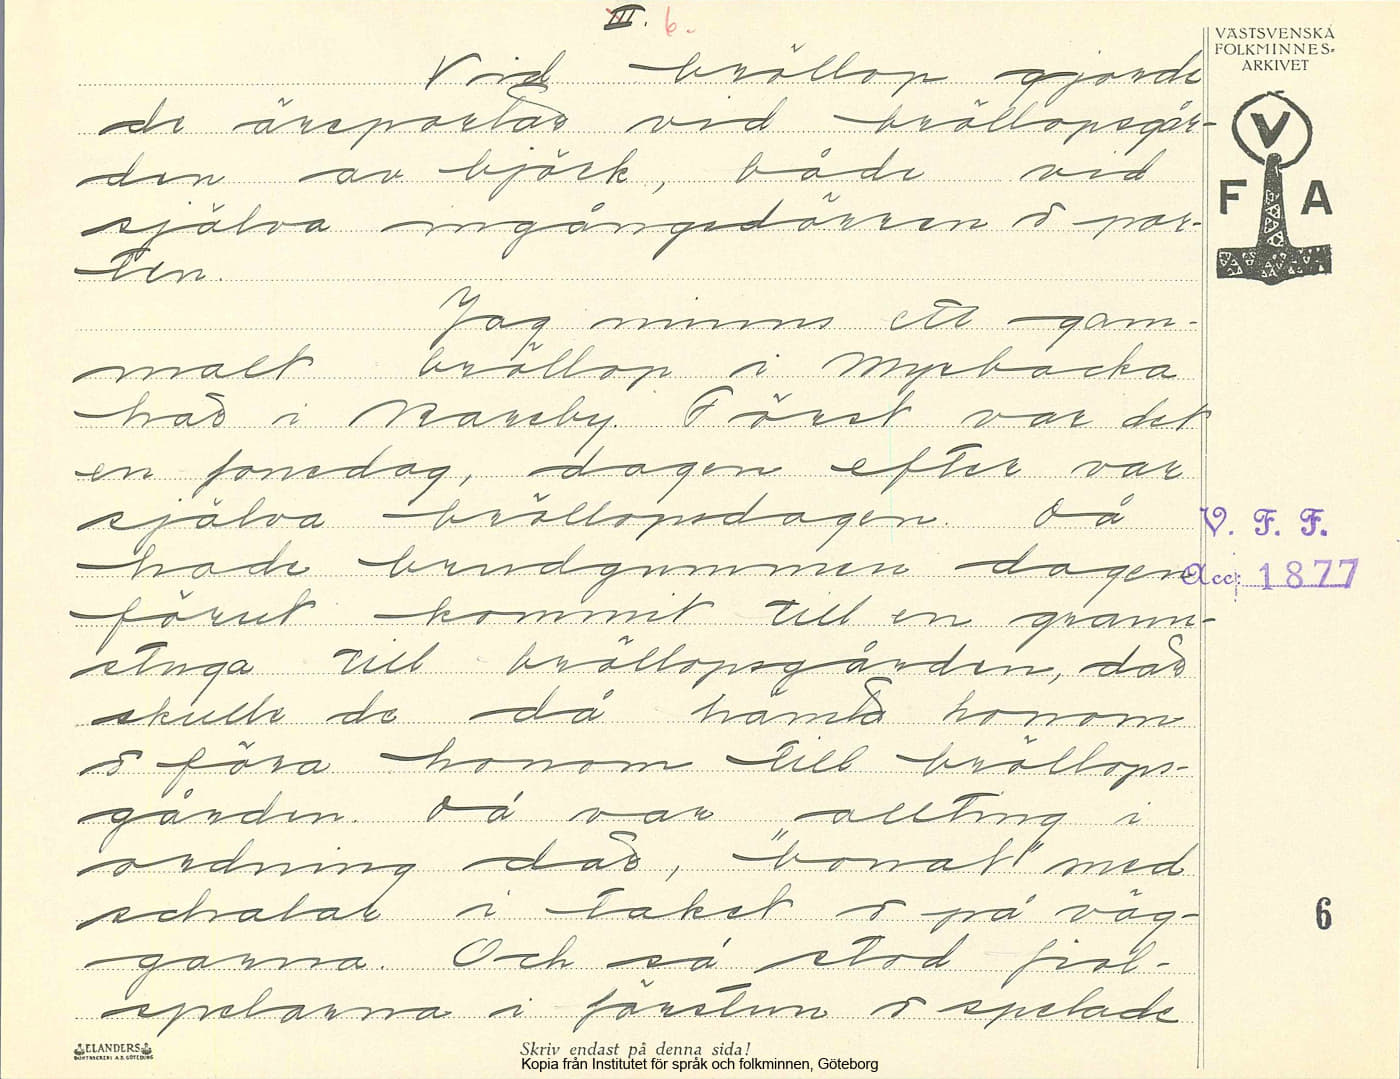 III. 6.
VÄSTSVENSKA
FOLKMINNES-
ARKIVET
V
F A
Vid bröllop gjorde
de äreportar vid bröllopsgår-
den av björk, både vid
själva ingångsdörren o por-
ten.
Jag minns ett gam-
malt bröllop i Myrbacka
här i Kareby. Först var det
en fonsdag, dagen efter var
själva bröllopsdagen. Då
hade brudgummen dagen
förut kommit till en grann-
stuga till bröllopsgården, där
skulle de då hämta honom
o föra honom till bröllops-
gården. Då var allting i
ordning där, "bonat" med
schalar i taket o på väg-
garna. Och så stod fiol-
spelarna i förstun o spelade
V. F. F.
Acc: 1877
6
ELANDERS
BOKTRYCKERI A.B. GÖTEBORG
Skriv endast på denna sida!
Kopia från Institutet för språk och folkminnen, Göteborg